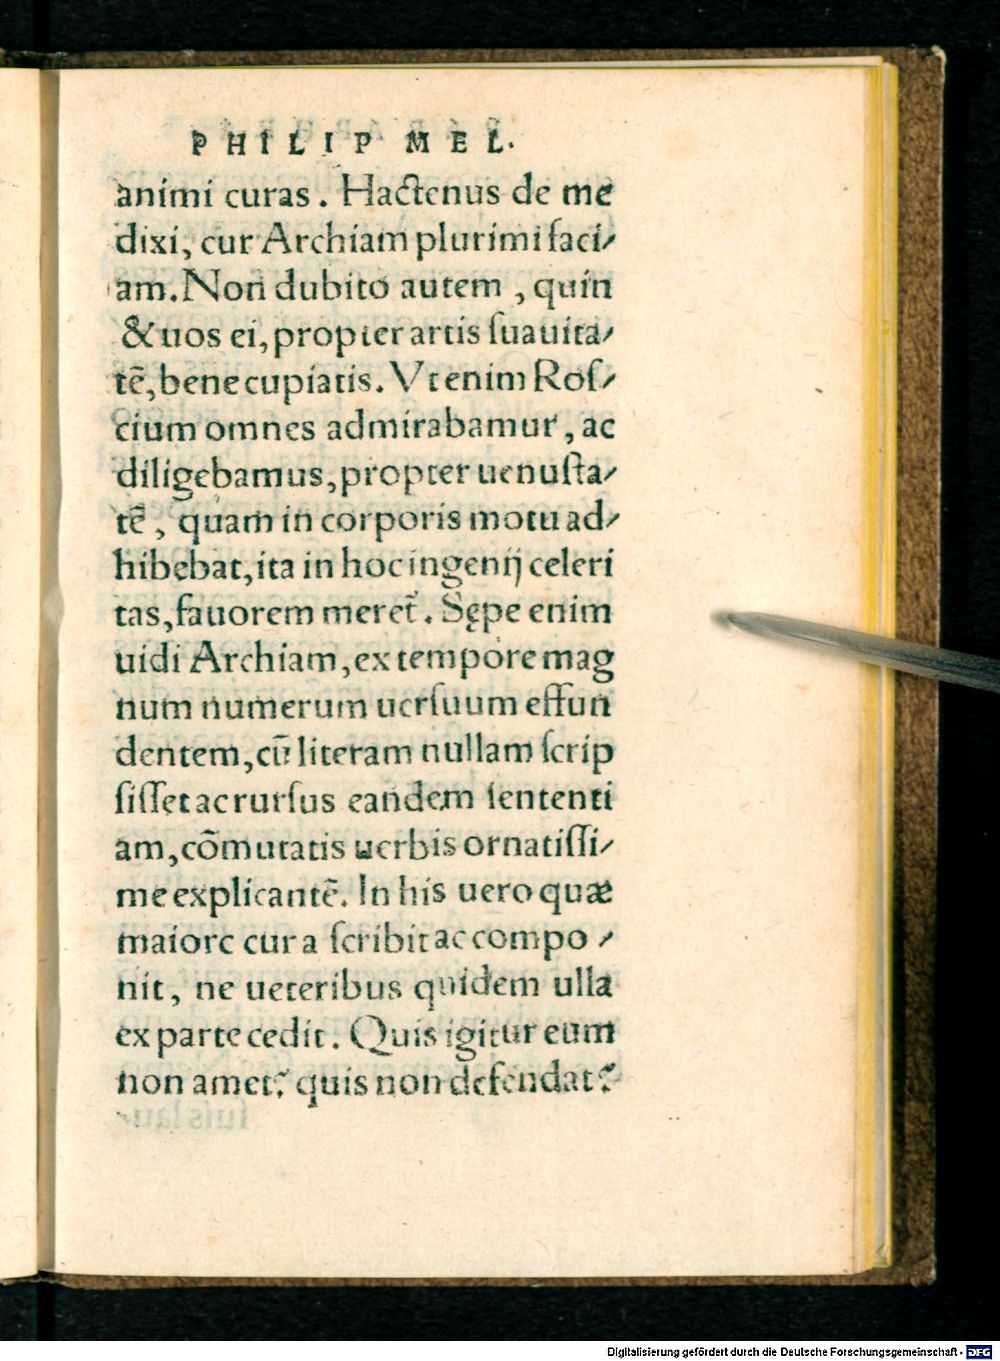 PHILIP MEL.
animi curas. Hactenus de me
dixi, cur Archiam plurimi faci⸗
am. Non dubito autem, quin
& uos ei, propter artis ſuauita⸗
tē, bene cupiatis. Vt enim Roſ⸗
cium omnes admirabamur, ac
diligebamus, propter uenuſta⸗
tē, quam in corporis motu ad⸗
hibebat, ita in hoc ingenij celeri
tas, fauorem meret̄. Sępe enim
uidi Archiam, ex tempore mag
num numerum uerſuum effun
dentem, cū literam nullam ſcrip
ſiſſet ac rurſus eandem ſententi
am, cōmutatis uerbis ornatiſſi⸗
me explicantē. In his uero quæ
maiore cura ſcribit ac compo⸗
nit, ne ueteribus quidem ulla
ex parte cedit. Quis igitur eum
non amet? quis non defendat?
Digitalisierung gefördert durch die Deutsche Forschungsgemeinschaft - DFG